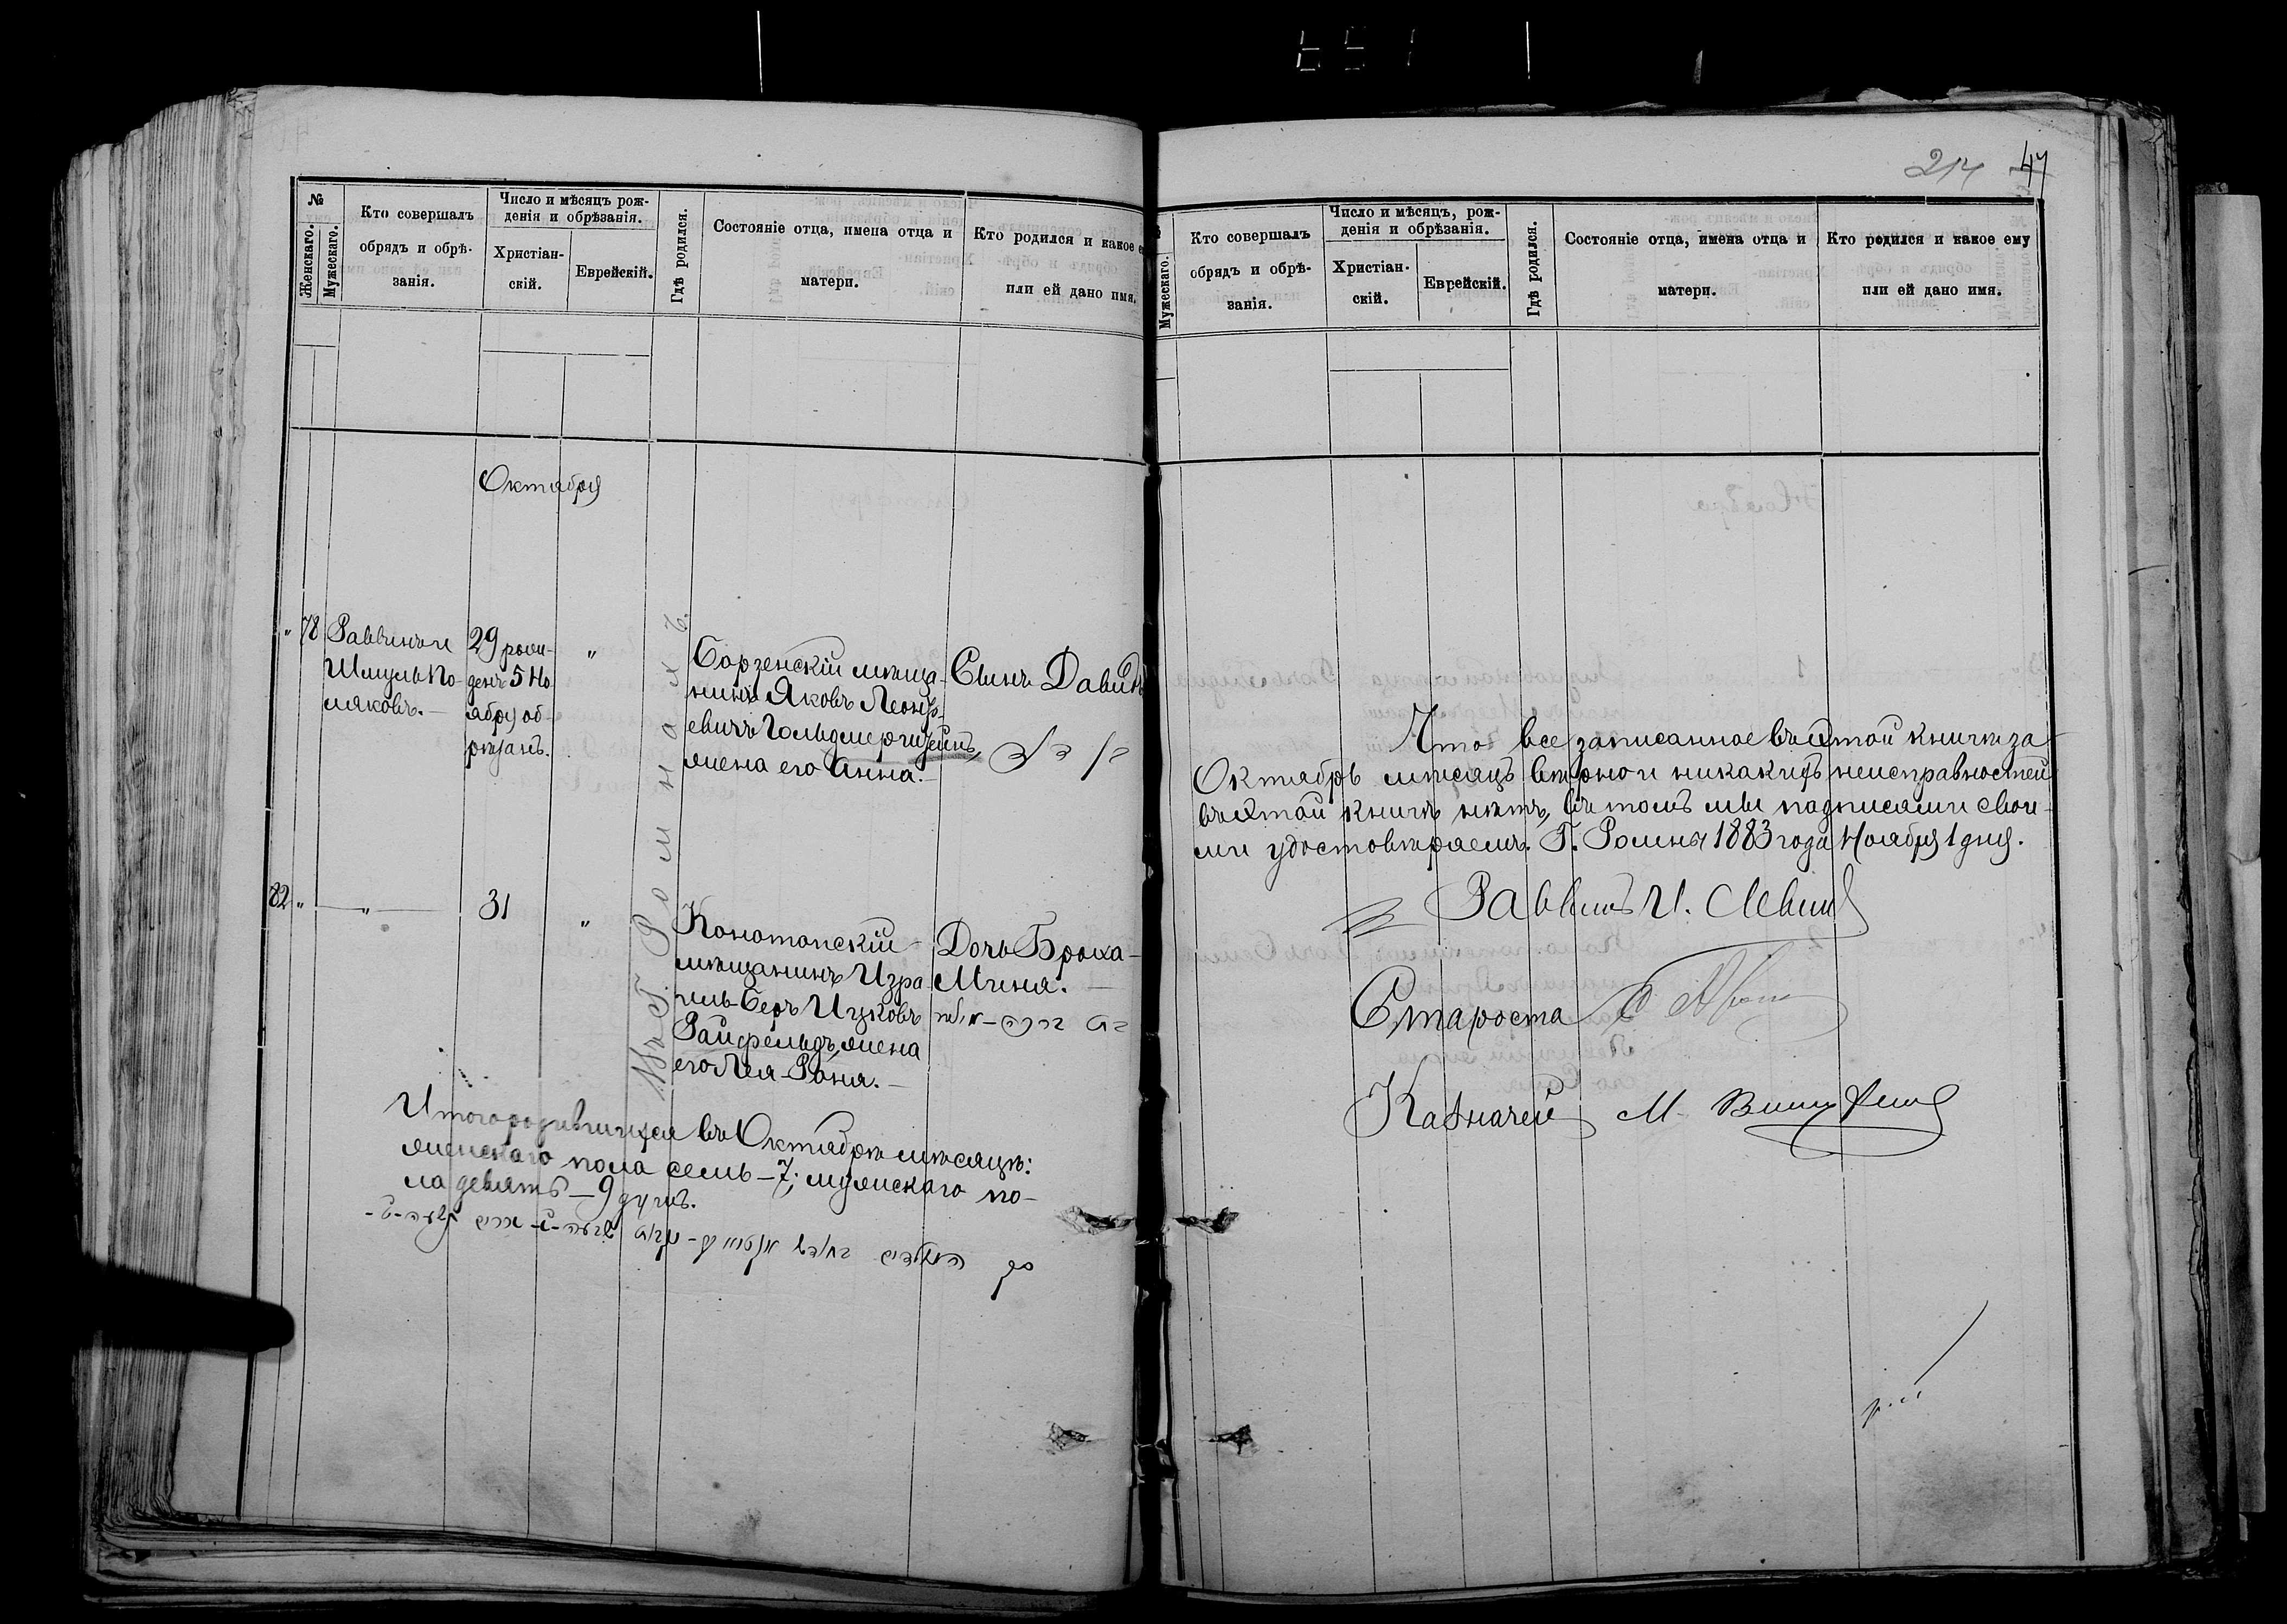 №
Женскаго.
Мужескаго.
Кто совершалъ
обрядъ и обрѣ-
занія.
Число и мѣсяцъ рож-
денія и обрѣзанія.
Христіан-
скій.
Еврейскій.
Гдѣ родился.
Состояніе отца, имена отца и
матери.
Кто родился и какое е
или ей дано имя.
Октября
" 78
Раввинъ и
Шмуль По-
ляковъ.—
29 рож-
денъ 5 Но
ября об-
рѣзанъ.
"
Въ Г. Ромнахъ.
Борзенскій мѣща-
нинъ Яковъ Леонр-
евичъ Гольдмерштейнъ,
жена его Анна.—
Сынъ Давидъ
בן
82 "
—"—
31
"
Конотопскій
мѣщанинъ Изра
иль-Беръ Ицковъ
Райфельдъ, жена
его Лея-Роня.—
Дочь Броха-
Миня.—
בת
Итого родившихся въ Октябрѣ мѣсяцѣ:
женскаго пола семь—7; мужскаго по-
ла девять—9 душъ.
214 47
Мужескаго.
Кто совершалъ
обрядъ и обрѣ-
занія.
Число и мѣсяцъ, рож-
денія и обрѣзанія.
Христіан-
скій.
Еврейскій.
Гдѣ родился.
Состояніе отца, имена отца и
матери.
Кто родился и какое ему
или ей дано имя.
Что все записанное въ этой книгѣ за
Октябрь мѣсяцъ вѣрно и никакихъ неисправностей
въ этой книгѣ нѣтъ, въ томъ мы подписями свои-
ми удостовѣряемъ. Г. Ромны 1883 года Ноября 1 дня.
Раввинъ И. Левин
Староста
Казначей М.